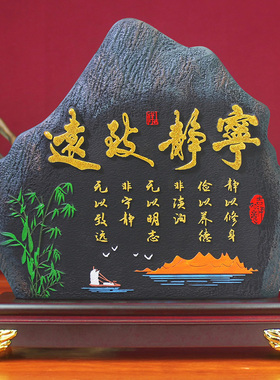 寧靜致遠
静以修身
俭以养德
非淡泊
无以明志
非宁静
无以致远